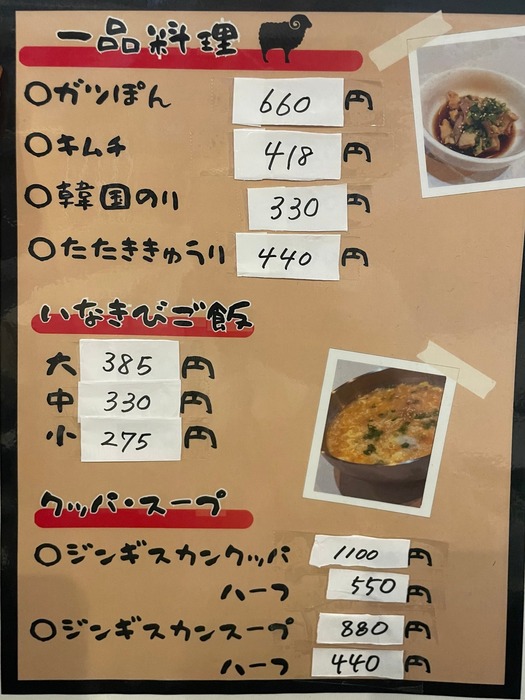 一品料理
〇ガツぽん 660円
〇キムチ 418円
〇韓国のり 330円
〇たたききゅうり 440円
いなきびご飯
大 385円
中 330円
小 275円
クッパ・スープ
〇ジンギスカンクッパ 1100円
ハーフ 550円
〇ジンギスカンスープ 880円
ハーフ 440円